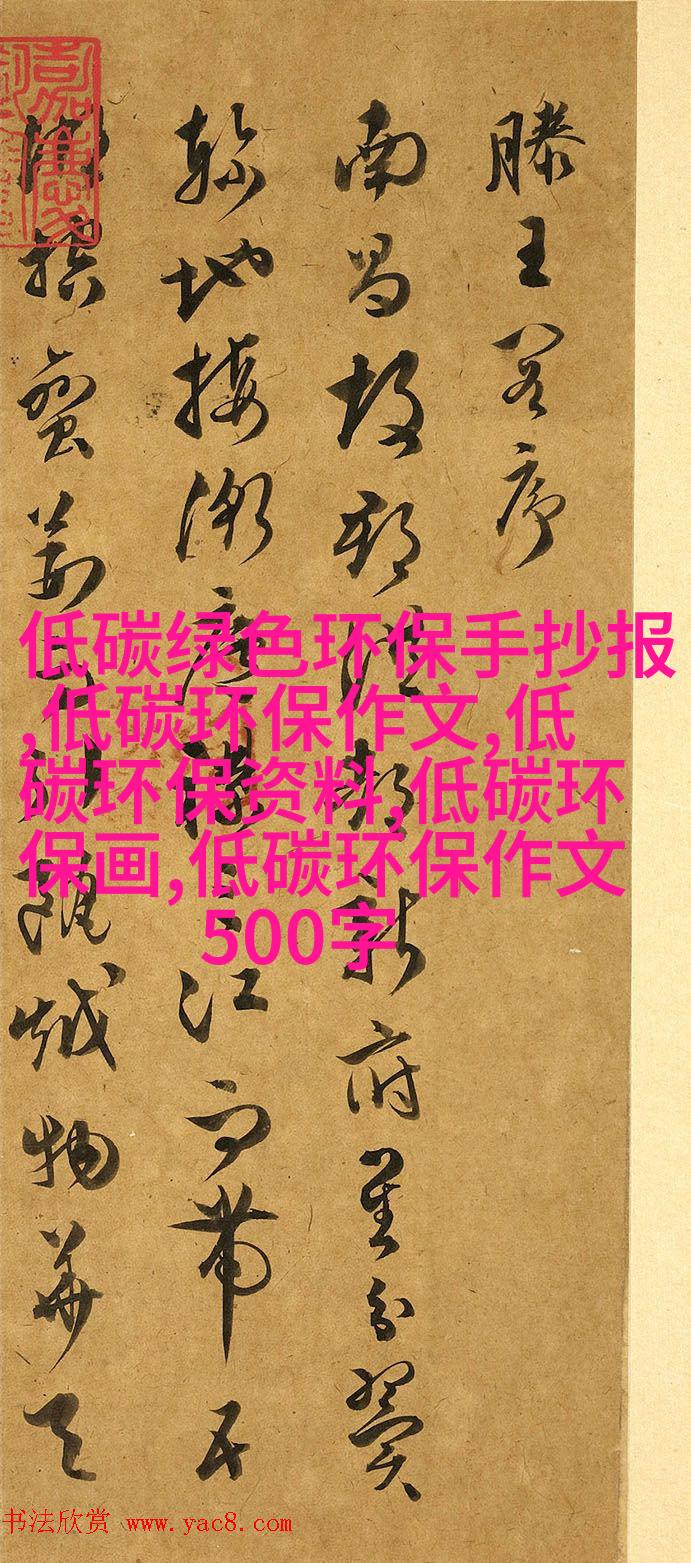 滕王閣序
南昌故郡洪都新府星分翼
軫地接衡廬襟三江而帶五
湖控蠻荊而引甌越物華天
低碳绿色环保手抄报
,低碳环保作文,低
碳环保资料,低碳环
保画,低碳环保作文
500字
书法欣赏 www.yac8.com